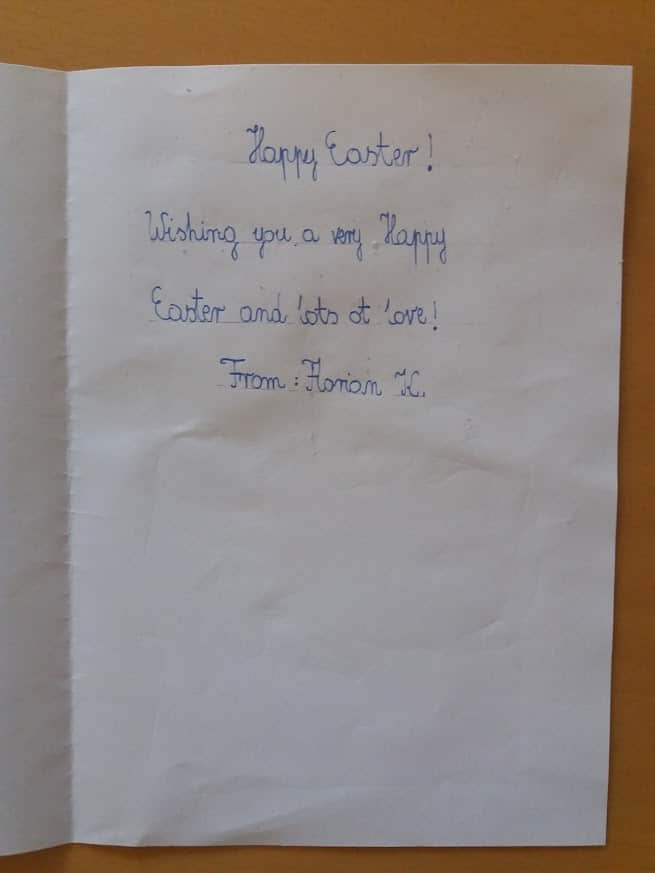 Happy Easter!
Wishing you a very Happy
Easter and lots of love!
From: Florian K.